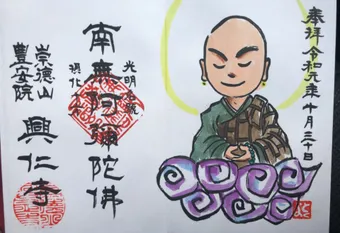 奉拝 令和元年十月三十日
光明
南無阿彌陀佛
摂化
崇徳山
豊安院
興仁寺